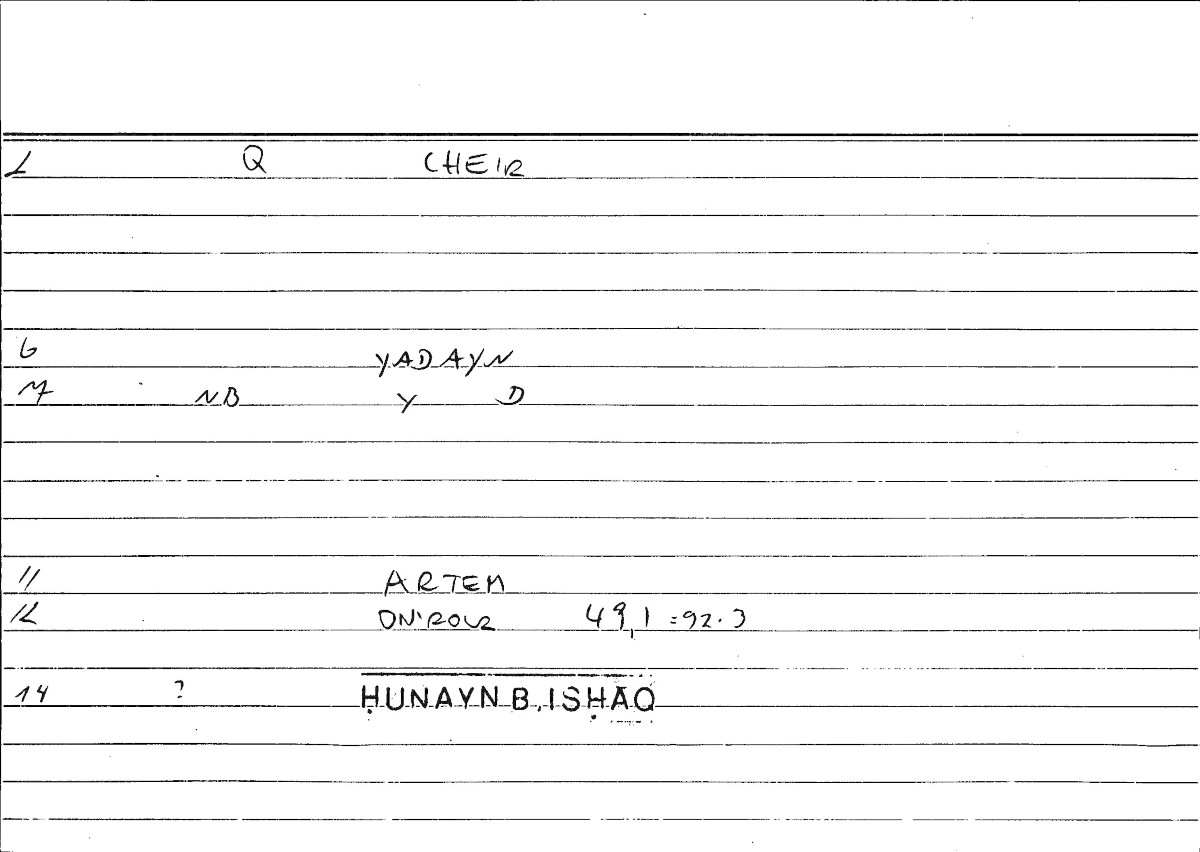 1 Q CHEIR
6 YADAYN
7 NB Y D
11 ARTEM
12 49,1 =92.3
14 ? ḤUNAYN B. ISḤĀQ